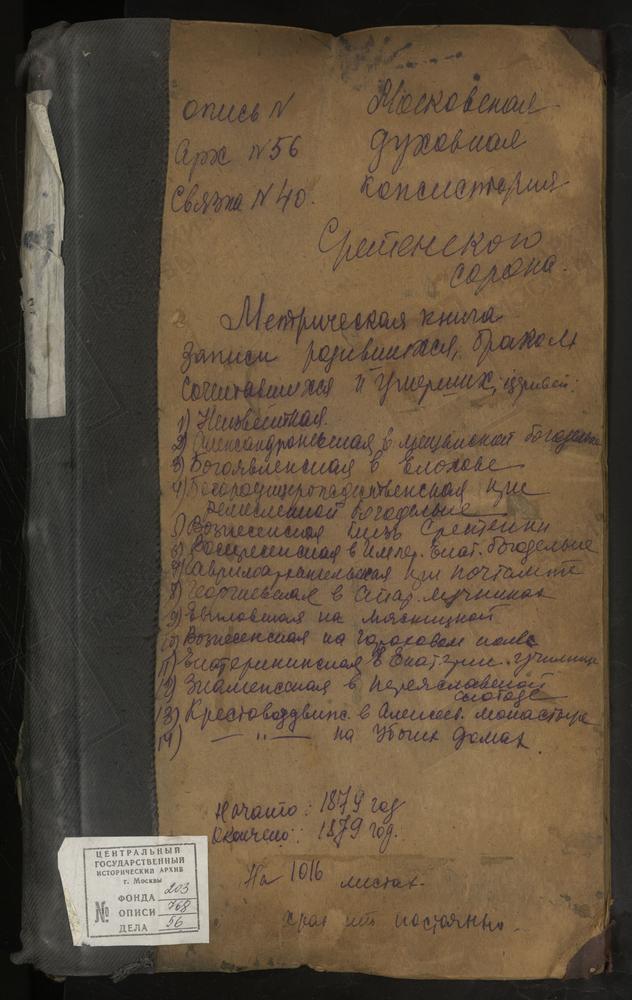 Опись N
Арх N 56
Связка N 40.
Московская
духовная
консистория
Сретенского
сорока.
Метрическая книга
Записи родившихся, браком
сочитавшихся и умерших, церквей:
1) Неизвестная.
2) Александроневская в мещанской богадельне
3) Богоявленская в Елохове
4) Богородицерождественская при
ремесленной богадельне
5) Вознесенская близ Сретенки
6) Воскресенская в Импер. Екат. богадельне
7) Гаврилоархангельская при почтамте
8) Георгиевская в Стар. Лучниках
9) Евпловская на Мясницкой
10) Вознесенская на Гороховом поле
11) Екатерининская в Екатерин. училище
12) Знаменская в Переяславской
слободе
13) Крестовоздвиж. в Алексеев. монастыре
14) — " — на Убогих домах.
Начато: 1879 год
Окончено: 1879 год.
На 1016 листах.
хранить постоянно.
ЦЕНТРАЛЬНЫЙ
ГОСУДАРСТВЕННЫЙ
ИСТОРИЧЕСКИЙ АРХИВ
г. Москвы
ФОНДА 203
№ ОПИСИ 768
ДЕЛА 56